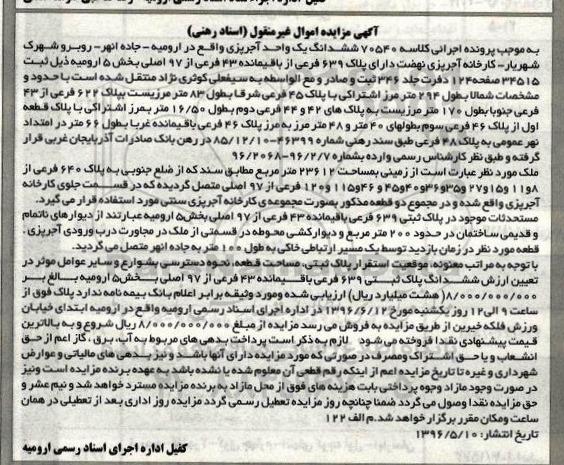 آگهی مزایده اموال غیرمنقول (اسناد رهنی)
به موجب پرونده اجرائی کلاسه ۷۰۵۴۰ ششدانگ یک واحد آجرپزی واقع در ارومیه – جاده انهر – روبرو شهرک
شهریار – کارخانه آجرپزی نهضت دارای پلاک ۶۳۹ فرعی از باقیمانده ۴۳ فرعی از ۹۷ اصلی بخش ۵ ارومیه ذیل ثبت
۳۴۵۱۵ صفحه ۱۲۴ دفترت جلد ۳۴۶ ثبت و صادر و مع الواسطه به سیفعلی کوثری نژاد منتقل شده است با حدود و
مشخصات شمالا بطول ۲۹۴ متر مرز اشتراکی با پلاک ۴۵ فرعی شرقا بطول ۸۳ متر مرزیست بپلاک ۶۲۲ فرعی از ۴۳
فرعی جنوبا بطول ۱۷۰ متر مرزیست به پلاک های ۴۲ و ۴۴ فرعی دوم بطول ۱۶/۵۰ متر بمرز اشتراکی با پلاک قطعه
اول از پلاک ۴۶ فرعی سوم بطولهای ۴۰ متر و ۴۸ متر مرز به مرز پلاک ۴۶ فرعی باقیمانده غربا بطول ۶۶ متر در امتداد
نهر عمومی به پلاک ۴۸ فرعی طبق سند رهنی شماره ۴۶۳۹۹–۸۵/۱۲/۱۰ در رهن بانک صادرات آذربایجان غربی قرار
گرفته و طبق نظر کارشناس رسمی وارده بشماره ۹۶/۲/۷–۹۶/۲۰۶۸
ملک مورد نظر عبارت است از زمینی بمساحت ۲۳۶۱۲ متر مربع مطابق سند که از ضلع جنوبی به پلاک ۶۴۰ فرعی از
۸و۱۱ و۱۵و۲۷ و۳۵و۳۶و۴۰و۴۵ و ۴۶و۱۱۵ و ۱۲۰ فرعی از ۹۷ اصلی متصل گردیده که در قسمت جلوی کارخانه
آجرپزی واقع شده و در مجموع دو قطعه مذکور بصورت مجموعه ی کارخانه آجرپزی سنتی مورد استفاده قرار می گیرد.
مستحدثات موجود در پلاک ثبتی ۶۳۹ فرعی باقیمانده ۴۳ فرعی از ۹۷ اصلی بخش ۵ ارومیه عبارتند از دیوارهای ناتمام
و قدیمی ساختمان در حدود ۲۰۰ متر مربع و دیوارکشی محوطه در قسمتی از ملک در مجاورت درب ورودی آجرپزی.
قطعه مورد نظر در زمان بازدید توسط یک مسیر ارتباطی خاکی به طول ۱۰۰ متر به جاده انهر متصل می گردید.
با توجه به مراتب معنونه، موقعیت استقرار پلاک ثبتی، مساحت قطعه، نحوه دسترسی بشوارع و سایر عوامل موثر در
تعیین ارزش ششدانگ پلاک ثبتی ۶۳۹ فرعی باقیمانده ۴۳ فرعی از ۹۷ اصلی بخش ۵ ارومیه بالغ بر
۸/۰۰۰/۰۰۰/۰۰۰ (هشت میلیارد ریال) ارزیابی شده ومورد وثیقه برابر اعلام بانک بیمه نامه ندارد پلاک فوق از
ساعت ۹ الی ۱۲ روز یکشنبه مورخ ۱۳۹۶/۶/۱۲ در اداره اجرای اسناد رسمی ارومیه واقع در ارومیه ابتدای خیابان
ورزش فلکه خیرین از طریق مزایده به فروش می رسد مزایده از مبلغ ۸/۰۰۰/۰۰۰/۰۰۰ ریال شروع و به بالاترین
قیمت پیشنهادی نقدا فروخته می شود  لازم به ذکر است پرداخت بدهی های مربوط به آب، برق، گاز اعم از حق
انشعاب و یا حق اشتراک ومصرف در صورتی که مورد مزایده دارای آنها باشد و نیز بدهی های مالیاتی و عوارض
شهرداری و غیره تا تاریخ مزایده اعم از اینکه رقم قطعی آن معلوم شده یا نشده باشد به عهده برنده مزایده است ونیز
در صورت وجود مازاد وجوه پرداختی بابت هزینه های فوق از محل مازاد به برنده مزایده مسترد خواهد شد و نیم عشر و
حق مزایده نقدا وصول می گردد ضمنا چنانچه روز مزایده تعطیل رسمی گردد مزایده روز اداری بعد از تعطیلی در همان
ساعت ومکان مقرر برگزار خواهد شد.م الف ۱۲۲
تاریخ انتشار: ۱۳۹۶/۵/۱۰
کفیل اداره اجرای اسناد رسمی ارومیه